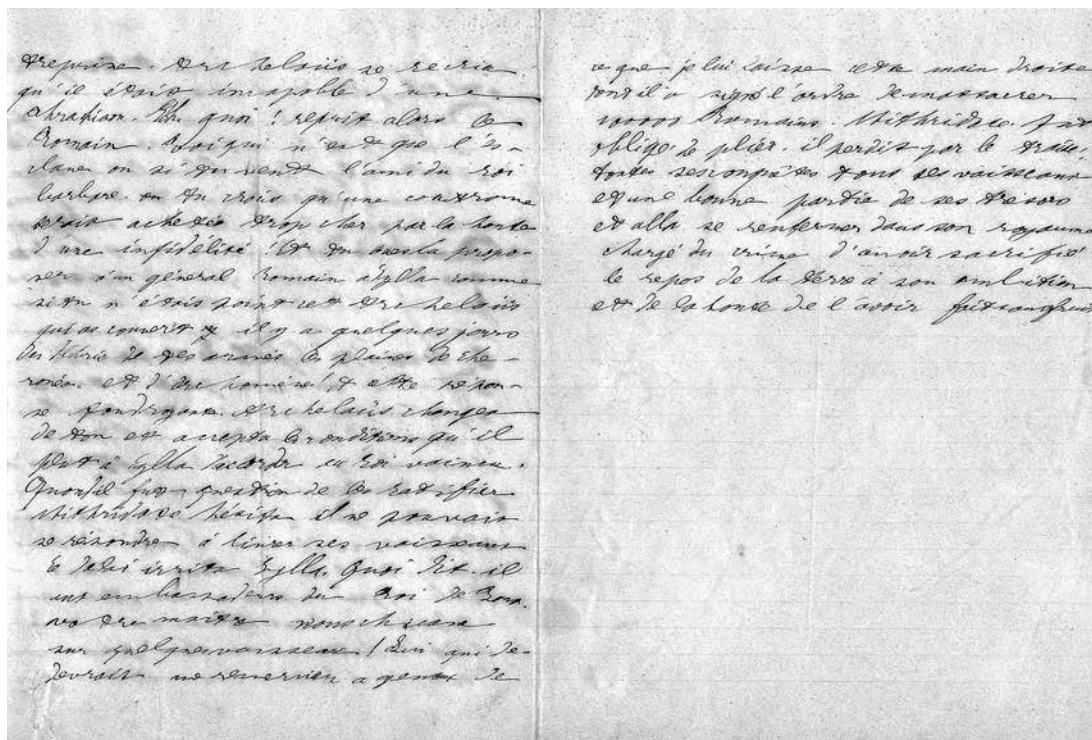 treprise. Archelaüs se recria
qu'il étais incapable d'une
Eh quoi ! reprit alors le
Romain. toi qui n'est que l'es-
clave ou si tu veut l'ami du roi
barbare. tu crois qu'une couronne
serais achetée trop cher par la honte
d'une infidélité ! Et tu oses la propo-
ser à un général Romain à Sylla comme
si tu n'étais point cet Archelaüs
qui as couvert il y a quelques jours
des débris de tes armés les plaines de Che-
ronée. et d' A cette répon-
se Archelaüs changea
de ton et accepta les conditions qu'il
plut à Sylla au roi vaincu.
Quand il fut question de les ratifier
Mithridate hésita il ne pouvais
se résoudre à livrer ses vaisseaux
le délai irrita Sylla. Quoi dit-il
aux embassadeurs du Roi de
votre maître nous chicane
sur quelques vaisseaux ! Lui qui de-
devrait me remercier a genoux de
ce que je lui laisse cette main droite
dont il a signé l'ordre de massacrer
Romains. Mithridate. fut
obligé de plier. il perdit par le traité
toutes ses conquêtes tous ses vaisseaux
et une bonne partie de ses trésors
et alla se renfermer dans son royaume
chargé du crime d'avoir sacrifié
le repos de la terre à son ambition
et de la honte de l'avoir fait